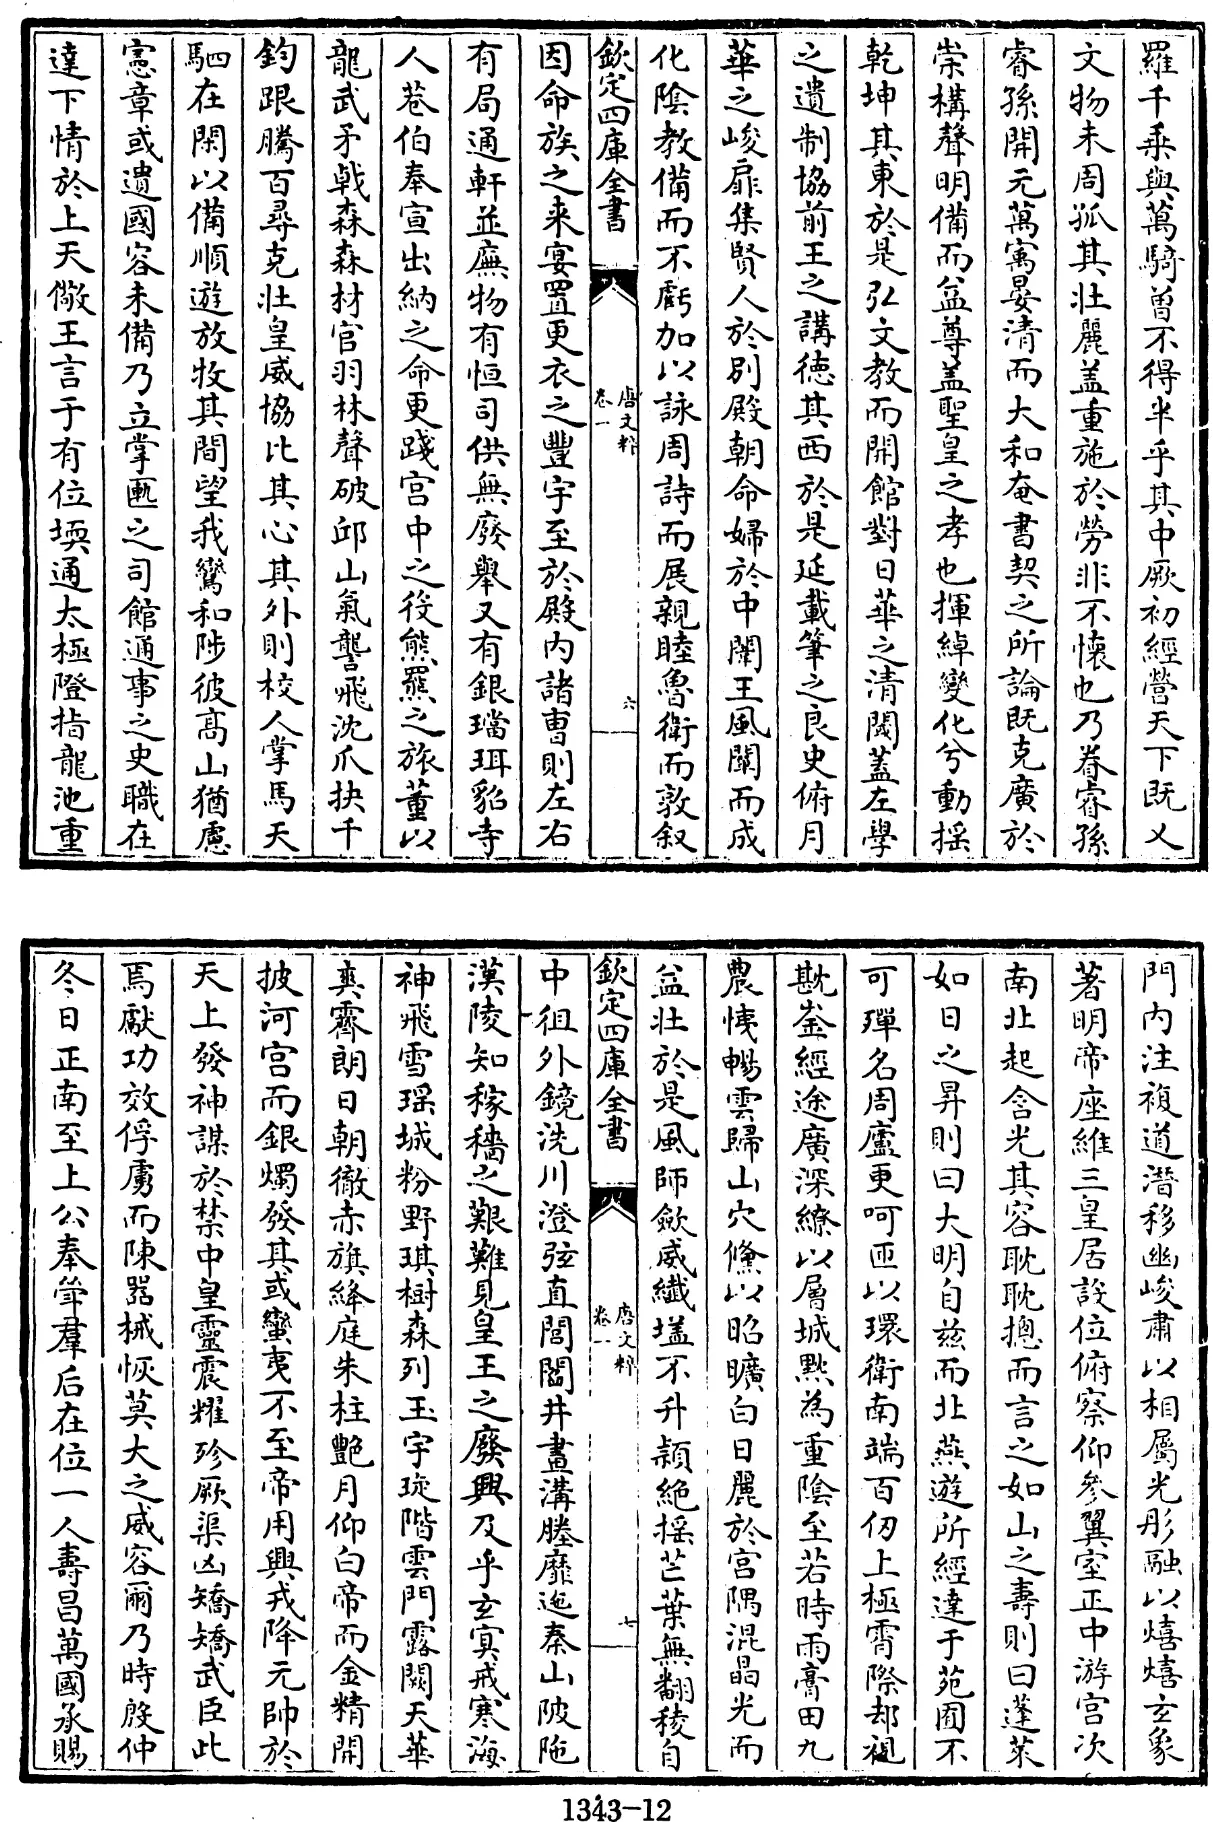 羅千乗與萬騎曽不得半乎其中厥初經營天下既乂
文物未周孤其壯麗盖重施於勞非不懐也乃眷睿孫
睿孫開元萬寓晏清而大和奄書契之所論既克廣於
崇構聲明備而益尊盖聖皇之孝也揮綽變化兮動揺
乾坤其東於是弘文教而開館對日華之清閟葢左學
之遺制協前王之講徳其西於是延載筆之良史俯月
華之峻扉集賢人於別殿朝命婦於中闈王風闡而成
化隂教備而不虧加以詠周詩而展親睦魯衛而敦叙
欽定四庫全書
唐文粹
卷一
六
因命族之来宴置更衣之豐宇至於殿内諸曺則左右
有局通軒並廡物有恒司供無廢舉又有銀璫珥貂寺
人巷伯奉宣出納之命更踐宫中之役熊羆之旅董以
龍武矛戟森森材官羽林聲破邱山氣讋飛沈爪抉千
鈞跟騰百尋克壯皇威協比其心其外則校人掌馬天
駟在閑以備順遊放牧其間望我鸞和陟彼髙山猶慮
憲章或遺國容未備乃立掌匭之司館通事之史職在
達下情於上天儆王言于有位堧通太極隥指龍池重
門内注複道潜移幽峻肅以相屬光彤融以熺熺玄象
著明帝座維三皇居設位俯察仰參翼室正中游宫次
南北起含光其容耽耽摠而言之如山之夀則曰蓬萊
如日之昇則曰大明自兹而北燕遊所經達于苑囿不
可殫名周廬更呵匝以環衛南端百仞上極霄際却視
戡崟經途廣深繚以層城黙為重隂至若時雨膏田九
農愧暢雲歸山穴儵以昭曠白日麗於宫隅混晶光而
益壯於是風師歛威纎壒不升頴絶揺芒葉無翻稜自
欽定四庫全書
唐文粹
卷一
七
中徂外鏡洗川澄弦直閭閻井畫溝塍靡迤秦山陂陁
漢陵知稼穡之艱難見皇王之廢興及乎玄冥戒寒海
神飛雪瑶城粉野琪樹森列玉宇琁階雲門露闕天華
爽霽朗日朝徹赤旗絳庭朱柱艶月仰白帝而金精開
披河宫而銀燭發其或蠻夷不至帝用興戎降元帥於
天上發神謀於禁中皇靈震耀殄厥渠凶矯矯武臣此
焉獻功效俘虜而陳器械恢莫大之威容爾乃時殷仲
冬日正南至上公奉觴羣后在位一人夀昌萬國承賜
1343-12